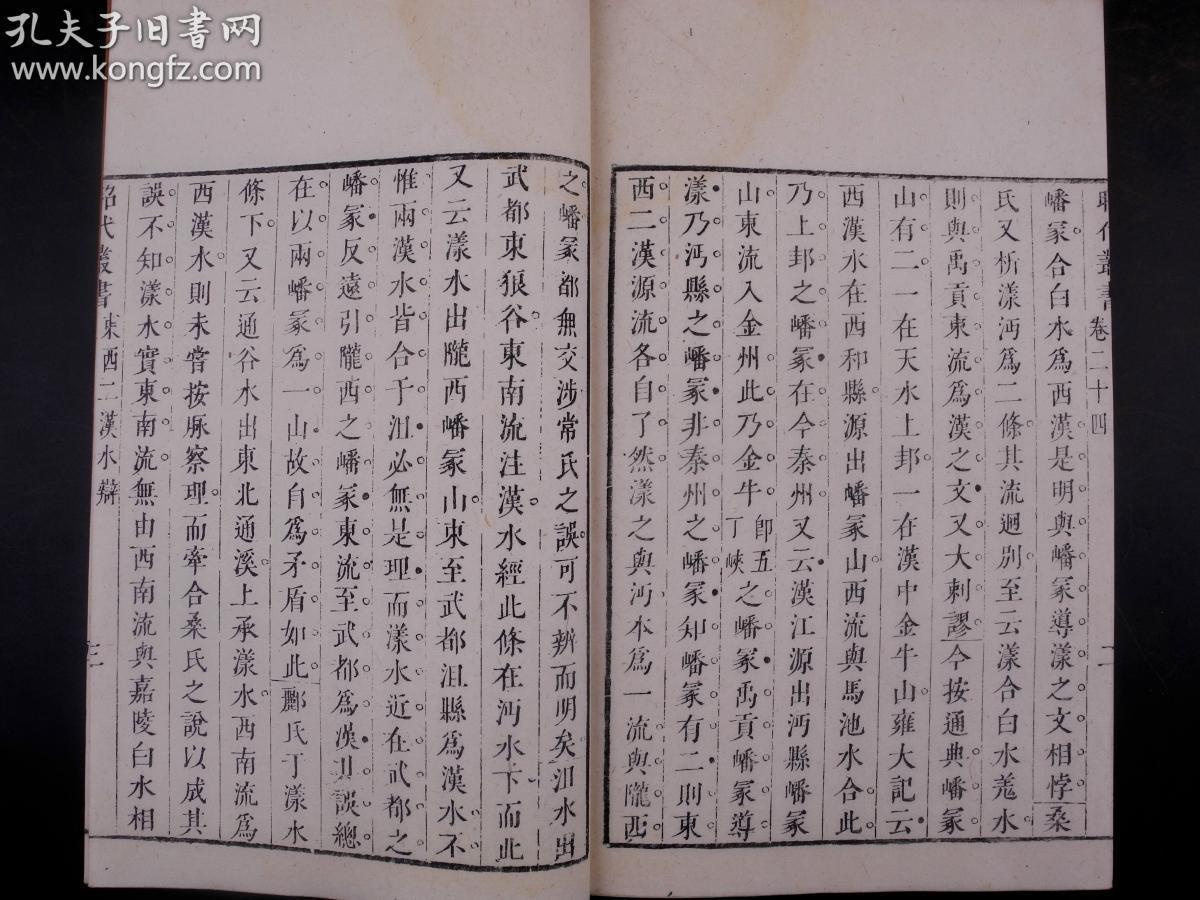 孔夫子旧书网
www.kongfz.com
昭代叢書 卷二十四 二
嶓冢合白水爲西漢是明與嶓冢導漾之文相悖桑
氏又析漾沔爲二條其流迥别至云漾合白水羗水
則與禹貢東流爲漢之文又大剌謬今按通典嶓冢
山有二一在天水上邽一在漢中金牛山雍大記云
西漢水在西和縣源出嶓冢山西流與馬池水合此
乃上邽之嶓冢在今秦州又云漢江源出沔縣嶓冢
山東流入金州此乃金牛卽五丁峽之嶓冢禹貢嶓冢導
漾乃沔縣之嶓冢非秦州之嶓冢知嶓冢有二則東
西二漢源流各自了然漾之與沔本爲一流與隴西
之嶓冢都無交涉常氏之誤可不辨而明矣沮水出
武都東狼谷東南流注漢水經此條在沔水下而此
又云漾水出隴西嶓冢山東至武都沮縣爲漢水不
惟兩漢水皆合于沮必無是理而漾水近在武都之
嶓冢反遠引隴西之嶓冢東流至武都爲漢其誤總
在以兩嶓冢爲一山故自爲矛盾如此酈氏于漾水
條下又云通谷水出東北通溪上承漾水西南流爲
西漢水則未嘗按脈察理而牽合桑氏之說以成其
誤不知漾水實東南流無由西南流與嘉陵白水相
昭代叢書 東西二漢水辯